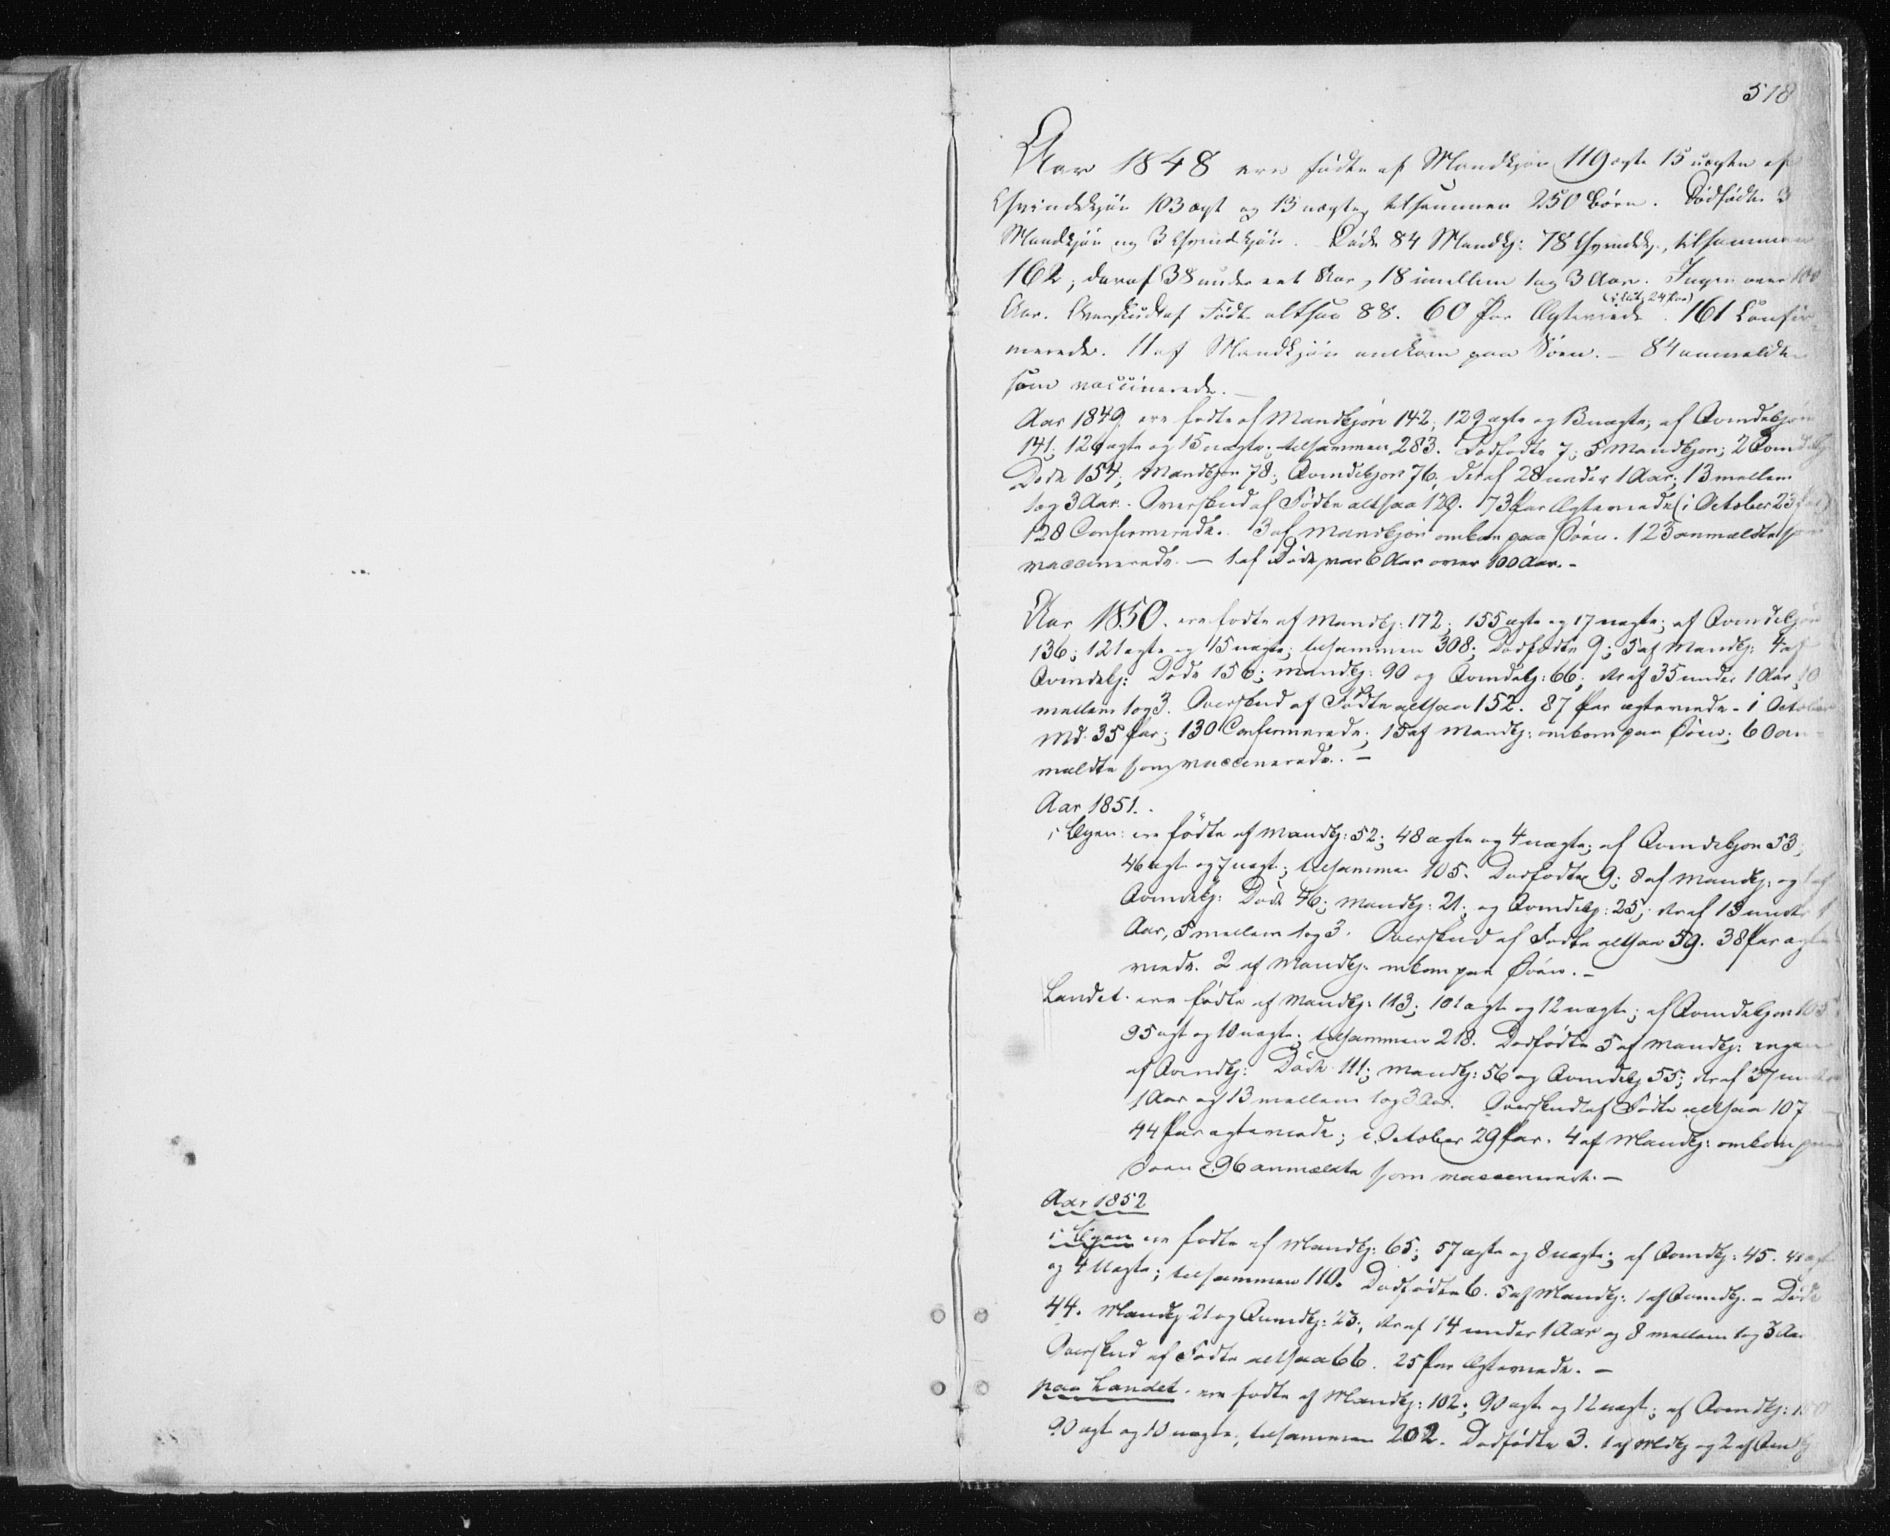 518
Aar 1848 ere fødte af Mandkjøn 119 ægte 15 uægte af
Qvindekjøn 103 ægt og 13 uægte, tilsammen 250 Børn. Dødfødte 3
Mandkjøn og 3 Qvindekjøn. Døde 84 Mandkj: 78 Qvindekj., tilsammen
162, deraf 38 under eet Aar, 18 imellem 1 og 3 Aar. Ingen over 100
Aar. Overskud af Fødte altsaa 88. 60 Par Ægteviede (i Oct. 24 Par). 161 Confir-
merede. 11 af Mandkjøn omkom paa Søen. – 84 anmeldte
som vaccinerede. –
Aar 1849 ere fødte af Mandkjøn 142, 129 ægte og 13 uægte, af Qvindekjøn
141; 126 ægte og 15 uægte; tilsammen 283. Dødfødte 7; 5 Mandkjøn; 2 Qvindekj
Døde 154, Mandkjøn 78; Qvindekjøn 76, deraf 28 under 1 Aar; 13 mellem
1 og 3 Aar. Overskud af Fødte altsaa 129. 73 Par Ægteviede (i October 23 Par)
128 Confirmerede. 3 af Mandkjøn omkom paa Søen. 123 anmældte som
vaccinerede. – 1 af Døde var 6 Aar over 100 Aar. –
Aar 1850. ere fødte af Mandkj: 172; 155 ægte og 17 uægte; af Qvindekjøn
136; 121 ægte og 15 uægte; tilsammen 308; Dødfødte 9; 5 af Mandkj: 4 af
Qvindekj: Døde 156; Mandkj: 90 og Qvindekj: 66; deraf 35 under 1 Aar, 10
mellem 1 og 3. Overskud af Fødte altsaa 152. 87 Par ægteviede – i October
Md. 35 Par; 130 Confirmerede; 15 af Mandkj: omkom paa Søen; 60 an-
meldte som vaccinerede. –
Aar 1851.
i Byen: ere fødte af Mandkj: 52; 48 ægte og 4 uægte; af Qvindekjøn 53,
46 ægte og 7 uægt.; tilsammen 105. Dødfødte 9; 8 af Mandkj: og 1 af
Qvindekj: Døde 46; Mandkj: 21; og Qvindekj: 25; deraf 13 under 1
Aar, 5 mellem 1 og 3. Overskud af Fødte altsaa 59. 38 Par ægte-
viede. 2 af Mandkj: omkom paa Søen. –
Landet. ere fødte af Mandkj: 113; 101 ægte og 12 uægte; af Qvindekjøn 105
95 ægt og 10 uægte; tilsammen 218. Dødfødte 5 af Mandkj: ingen
af Qvindkj: Døde 111; Mandkj: 56 og Qvindekj 55; deraf 37 under
1 Aar og 13 mellem 1 og 3 Aar. Overskud af Fødte altsaa 107
44 Par ægteviede; i October 29 Par. 4 af Mandkj: omkom paa
Søen. 96 anmældte som vaccinerede. –
Aar 1852
i Byen ere fødte af Mandkj: 65; 57 ægte og 8 uægte; af Qvindkj: 45. 41 ægt
og 4 Uægte; tilsammen 110. Dødfødte 6. 5 af Mandkj: 1 af Qvindkj. – Døde
44. Mandkj 21 og Qvindkj: 23; deraf 14 under 1 Aar og 8 mellem 1 og 3 Aar
Overskud af Fødte altsaa 66. 25 Par Ægteviede. –
paa Landet. ere fødte af Mandkj: 102; 90 ægte og 12 uægt.; af Qvindkj: 100
90 ægt og 10 uægte; tilsammen 202. Dødfødte 3. 1 af Mdkj og 2 af Qvindkj